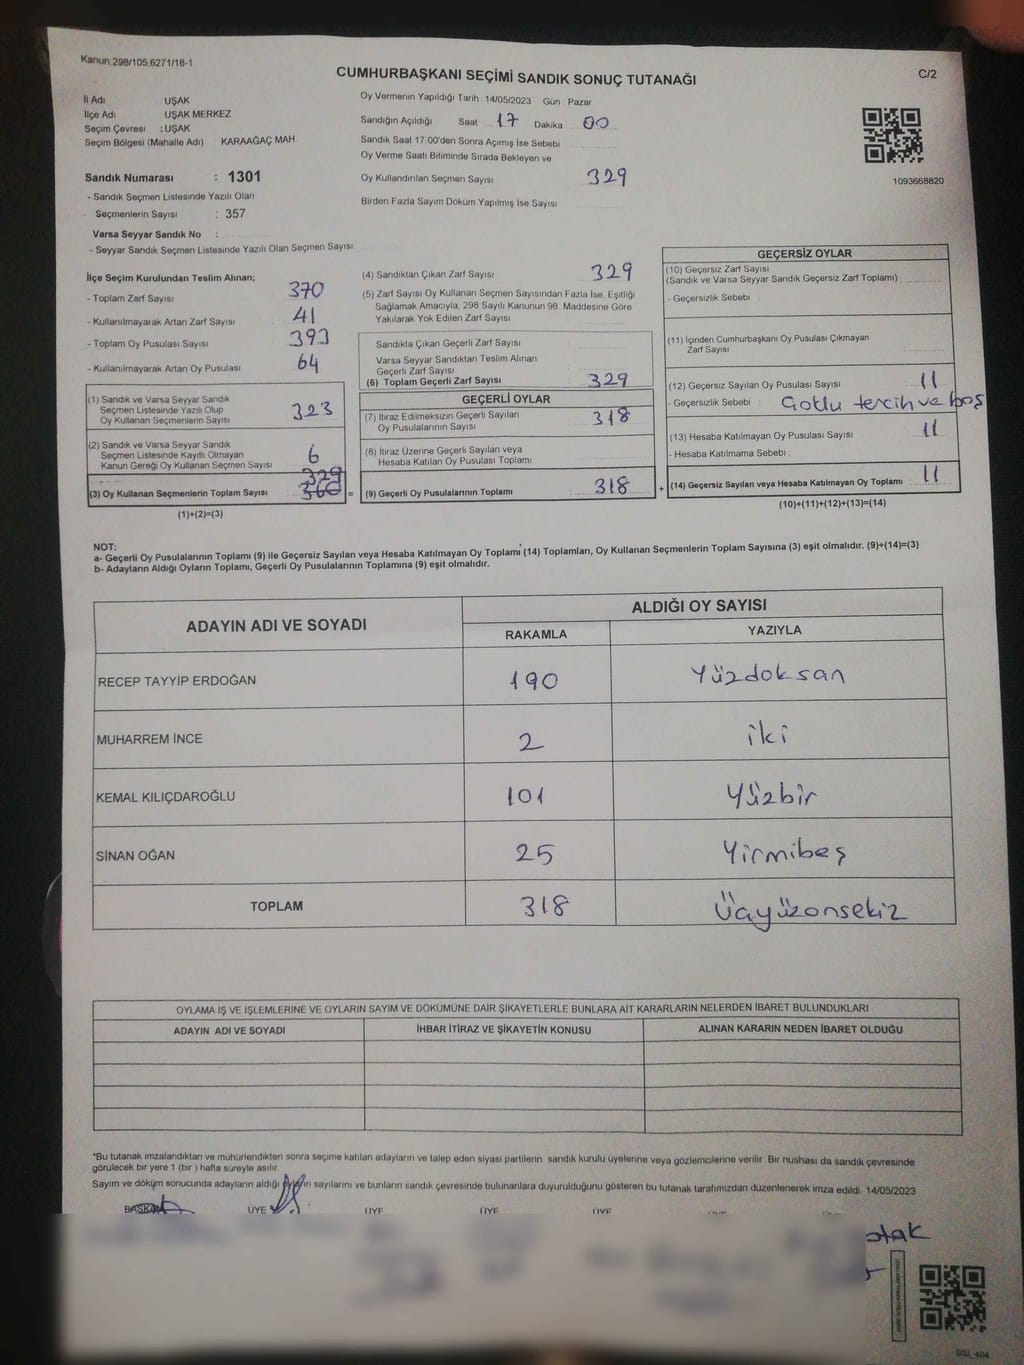 Kanun 298/105,6271/18-1
C/2
CUMHURBAŞKANI SEÇİMİ SANDIK SONUÇ TUTANAĞI
İl Adı UŞAK
İlçe Adı UŞAK MERKEZ
Seçim Çevresi : UŞAK
Seçim Bölgesi (Mahalle Adı) KARAAĞAÇ MAH.
Oy Vermenin Yapıldığı Tarih 14/05/2023 Gün Pazar
Sandığın Açıldığı Saat 17 Dakika 00
Sandık Saat 17.00'den Sonra Açımış İse Sebebi
Oy Verme Saati Bitiminde Sırada Bekleyen ve
Oy Kullandırılan Seçmen Sayısı 329
Birden Fazla Sayım Döküm Yapılmış İse Sayısı
1093668820
Sandık Numarası : 1301
- Sandık Seçmen Listesinde Yazılı Olan
- Seçmenlerin Sayısı : 357
Varsa Seyyar Sandık No :
- Seyyar Sandık Seçmen Listesinde Yazılı Olan Seçmen Sayısı
İlçe Seçim Kurulundan Teslim Alınan;
- Toplam Zarf Sayısı 370
- Kullanılmayarak Artan Zarf Sayısı 41
- Toplam Oy Pusulası Sayısı 393
- Kullanılmayarak Artan Oy Pusulası 64
(1) Sandık ve Varsa Seyyar Sandık
Seçmen Listesinde Yazılı Olup
Oy Kullanan Seçmenlerin Sayısı 323
(2) Sandık ve Varsa Seyyar Sandık
Seçmen Listesinde Kayıtlı Olmayan
Kanun Gereği Oy Kullanan Seçmen Sayısı 6
329
(3) Oy Kullanan Seçmenlerin Toplam Sayısı 360 =
(1)+(2)=(3)
(4) Sandıktan Çıkan Zarf Sayısı 329
(5) Zarf Sayısı Oy Kullanan Seçmen Sayısından Fazla İse, Eşitliği
Sağlamak Amacıyla, 298 Sayılı Kanunun 98. Maddesine Göre
Yakılarak Yok Edilen Zarf Sayısı
Sandıkta Çıkan Geçerli Zarf Sayısı
Varsa Seyyar Sandıktan Teslim Alınan
Geçerli Zarf Sayısı
(6) Toplam Geçerli Zarf Sayısı 329
GEÇERLİ OYLAR
(7) İtiraz Edilmeksizin Geçerli Sayılan
Oy Pusulalarının Sayısı 318
(8) İtiraz Üzerine Geçerli Sayılan veya
Hesaba Katılan Oy Pusulası Toplamı
(9) Geçerli Oy Pusulalarının Toplamı 318 +
GEÇERSİZ OYLAR
(10) Geçersiz Zarf Sayısı
(Sandık ve Varsa Seyyar Sandık Geçersiz Zarf Toplamı)
- Geçersizlik Sebebi
(11) İçinden Cumhurbaşkanı Oy Pusulası Çıkmayan
Zarf Sayısı
(12) Geçersiz Sayılan Oy Pusulası Sayısı 11
- Geçersizlik Sebebi : Çoklu tercih ve boş
(13) Hesaba Katılmayan Oy Pusulası Sayısı 11
- Hesaba Katılmama Sebebi
(14) Geçersiz Sayılan veya Hesaba Katılmayan Oy Toplamı : 11
(10)+(11)+(12)+(13)=(14)
NOT:
a- Geçerli Oy Pusulalarının Toplamı (9) ile Geçersiz Sayılan veya Hesaba Katılmayan Oy Toplamı (14) Toplamları, Oy Kullanan Seçmenlerin Toplam Sayısına (3) eşit olmalıdır. (9)+(14)=(3)
b- Adayların Aldığı Oyların Toplamı, Geçerli Oy Pusulalarının Toplamına (9) eşit olmalıdır.
ADAYIN ADI VE SOYADI
ALDIĞI OY SAYISI
RAKAMLA YAZIYLA
RECEP TAYYİP ERDOĞAN 190 Yüzdoksan
MUHARREM İNCE 2 iki
KEMAL KILIÇDAROĞLU 101 Yüzbir
SİNAN OĞAN 25 Yirmibeş
TOPLAM 318 Üçyüzonsekiz
OYLAMA İŞ VE İŞLEMLERİNE VE OYLARIN SAYIM VE DÖKÜMÜNE DAİR ŞİKAYETLERLE BUNLARA AİT KARARLARIN NELERDEN İBARET BULUNDUKLARI
ADAYIN ADI VE SOYADI İHBAR İTİRAZ VE ŞİKAYETİN KONUSU ALINAN KARARIN NEDEN İBARET OLDUĞU
*Bu tutanak imzalandıktan ve mühürlendikten sonra seçime katılan adayların ve talep eden siyasi partilerin sandık kurulu üyelerine veya gözlemcilerine verilir. Bir nüshası da sandık çevresinde
görülecek bir yere 1 (bir ) hafta süreyle asılır.
Sayım ve döküm sonucunda adayların aldığı oyların sayılarını ve bunların sandık çevresinde bulunanlara duyurulduğunu gösteren bu tutanak tarafımızdan düzenlenerek imza edildi. 14/05/2023
BAŞKAN ÜYE ÜYE ÜYE ÜYE